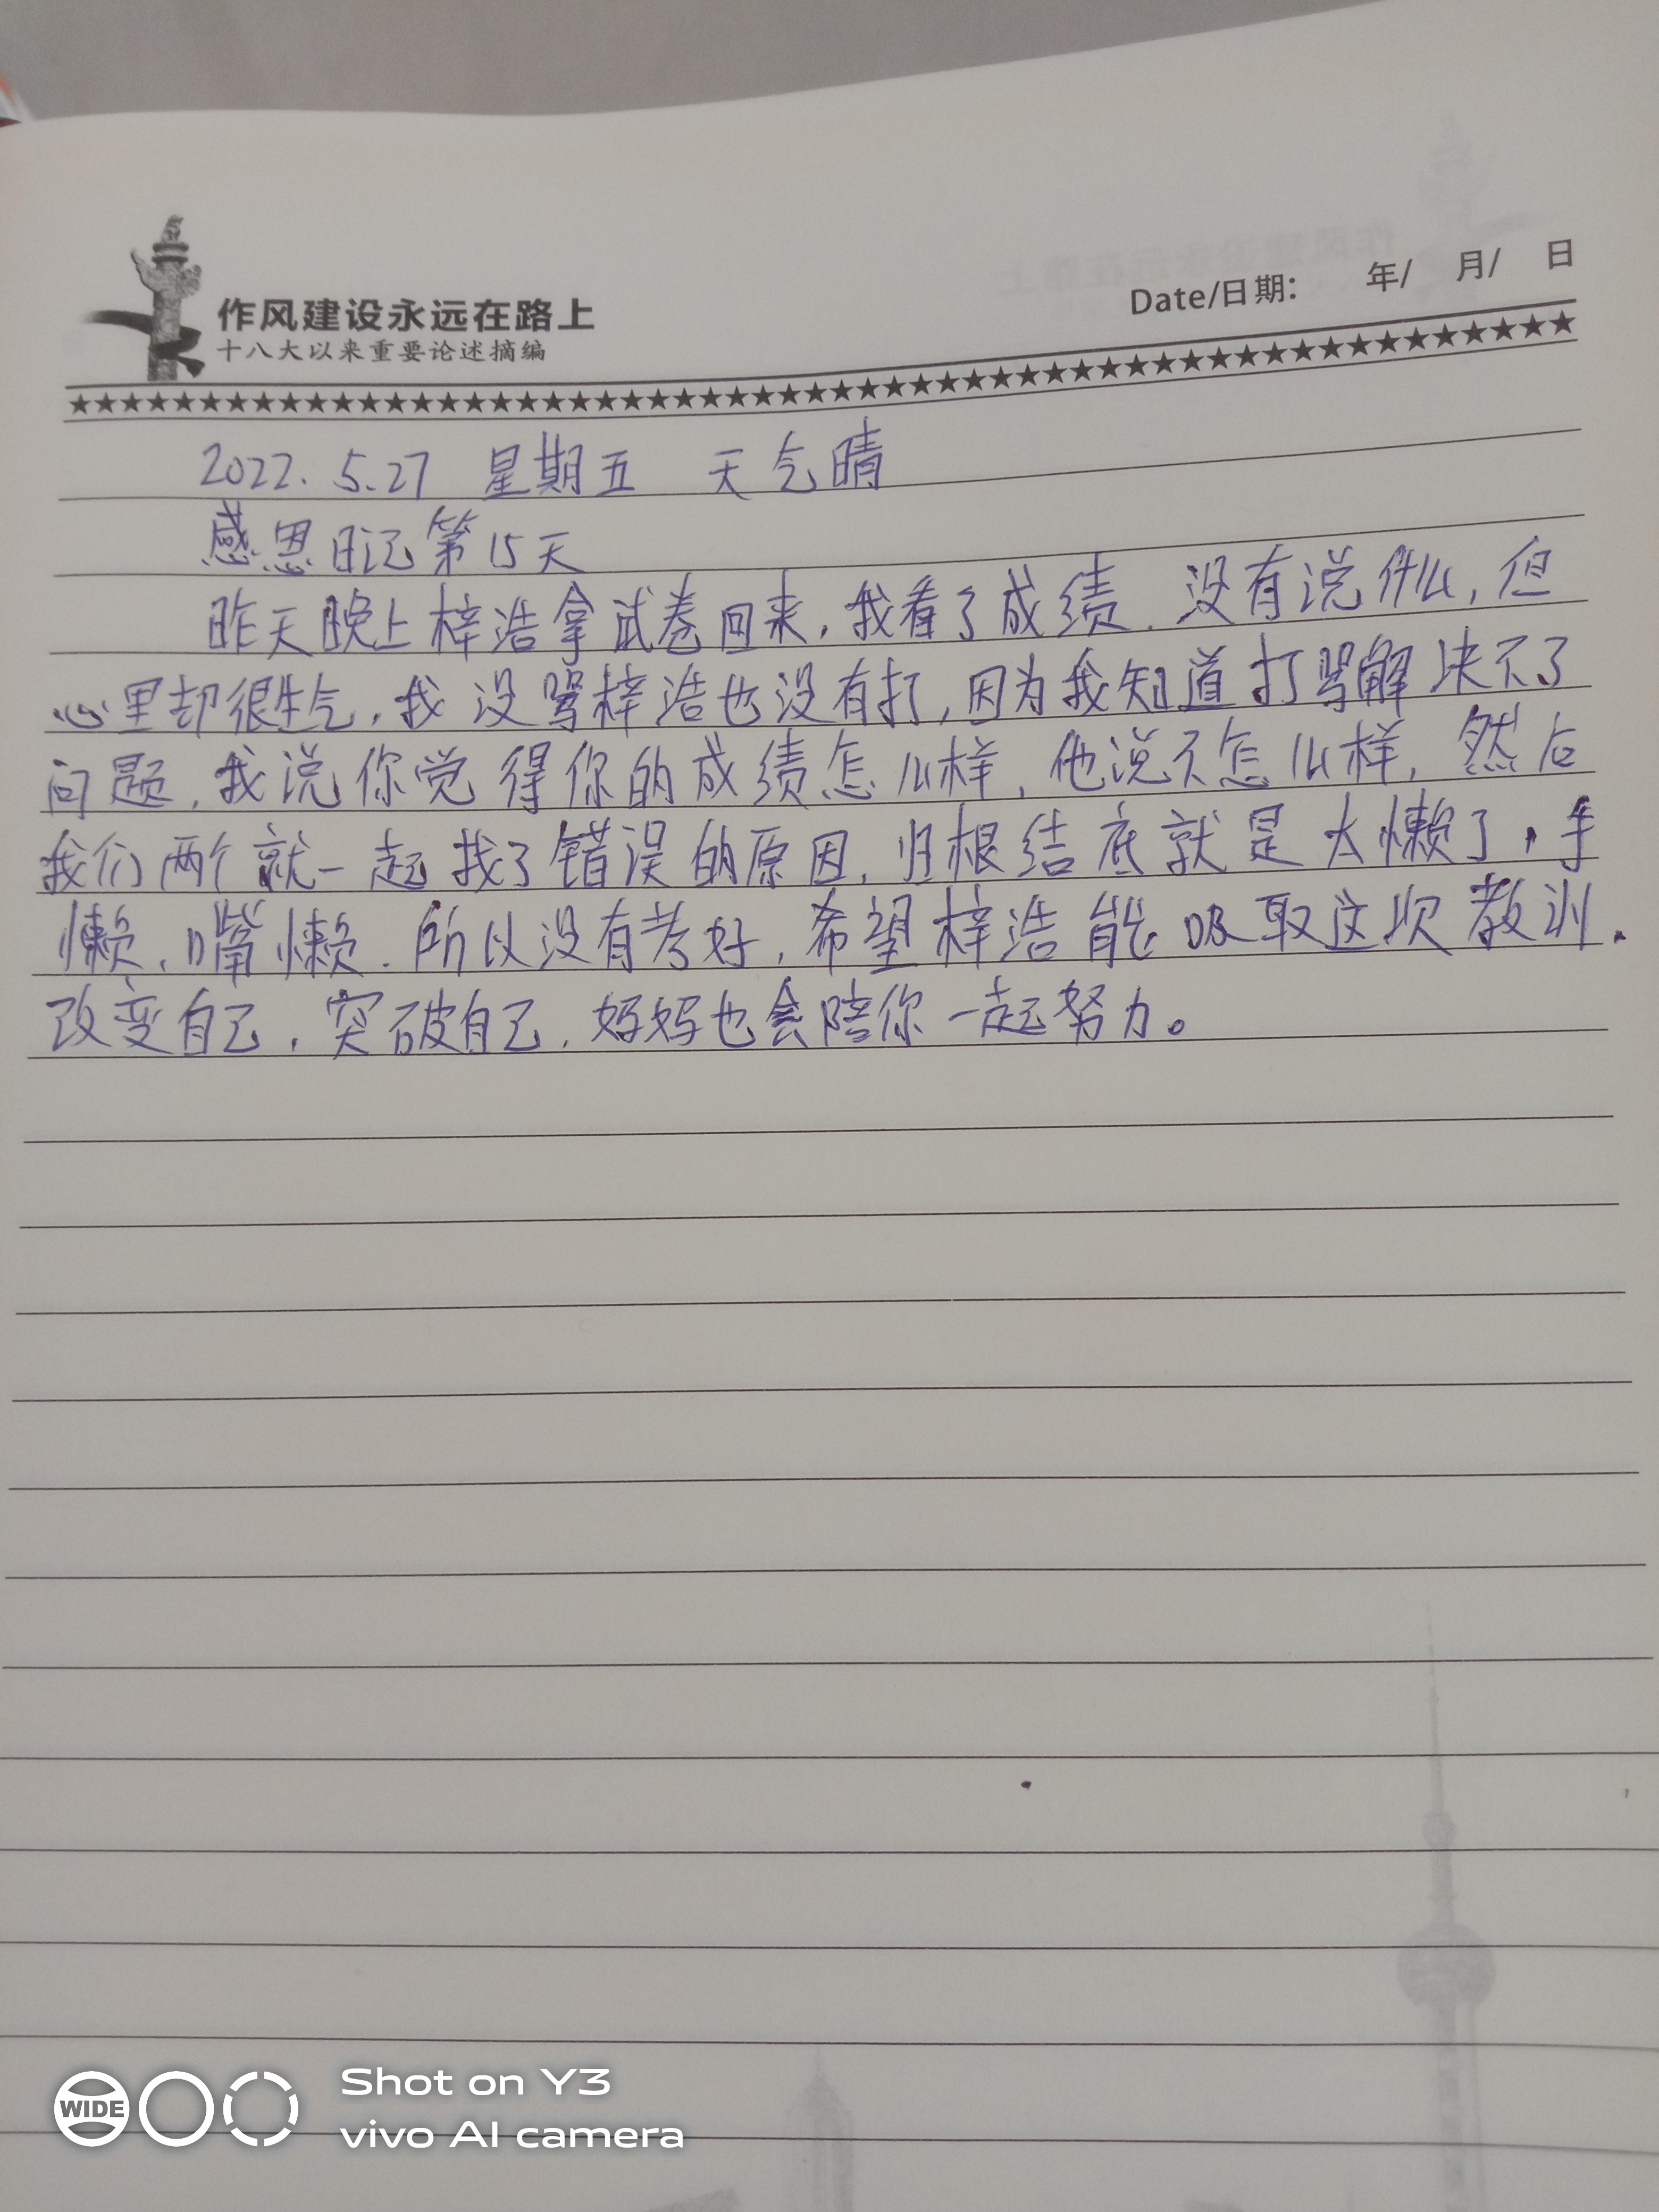 作风建设永远在路上
十八大以来重要论述摘编
Date/日期: 年/ 月/ 日
2022.5.27 星期五 天气晴
感恩日记第15天
昨天晚上梓浩拿试卷回来,我看了成绩.没有说什么,但
心里却很生气,我没骂梓浩也没有打,因为我知道打骂解决不了
问题,我说你觉得你的成绩怎么样,他说不怎么样,然后
我们两个就一起找了错误的原因,归根结底就是太懒了,手
懒、嘴懒.所以没有考好,希望梓浩能吸取这次教训.
改变自己,突破自己,妈妈也会陪你一起努力。
WIDE
Shot on Y3
vivo AI camera